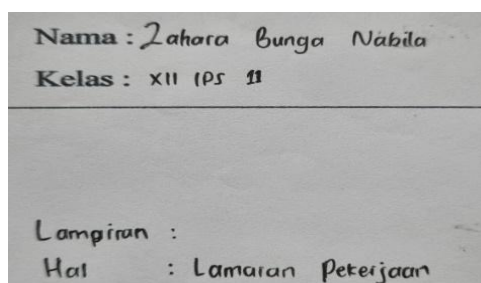 Nama : Zahara Bunga Nabila
Kelas : XII IPS 11
Lampiran :
Hal : Lamaran Pekerjaan